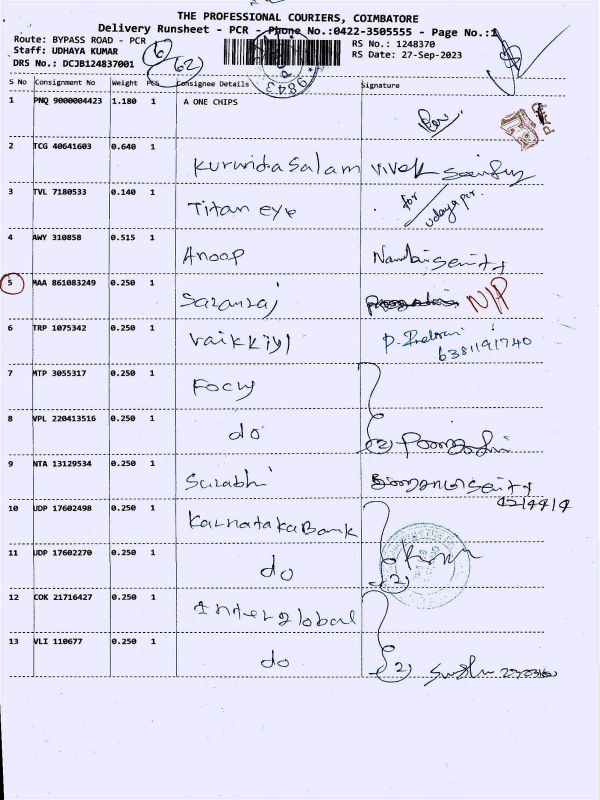 THE PROFESSIONAL COURIERS, COIMBATORE
Delivery Runsheet - PCR - Phone No.:0422-3505555 - Page No.:1
Route: BYPASS ROAD - PCR
RS No.: 1248370
Staff: UDHAYA KUMAR
RS Date: 27-Sep-2023
DRS No.: DCJB124837001
6
62
9843
S No Consignment No Weight PCS Consignee Details Signature
1 PNQ 9000004423 1.180 1 A ONE CHIPS
2 TCG 40641603 0.640 1 Kurunida Salam Vivek
3 TVL 7180533 0.140 1 Titan eye for udaya pcr.
4 AWY 310858 0.515 1 Anoop
5 MAA 861083249 0.250 1 Saranraj N/P
6 TRP 1075342 0.250 1 Vaikkiyl P.
6381191740
7 MTP 3055317 0.250 1 Focuy
8 VPL 220413516 0.250 1 do (2)
9 NTA 13129534 0.250 1 Surabhi
4214414
10 UDP 17602498 0.250 1 Karnataka Bank
11 UDP 17602270 0.250 1 do (2)
12 COK 21716427 0.250 1 Interglobal
13 VLI 110677 0.250 1 do (2)